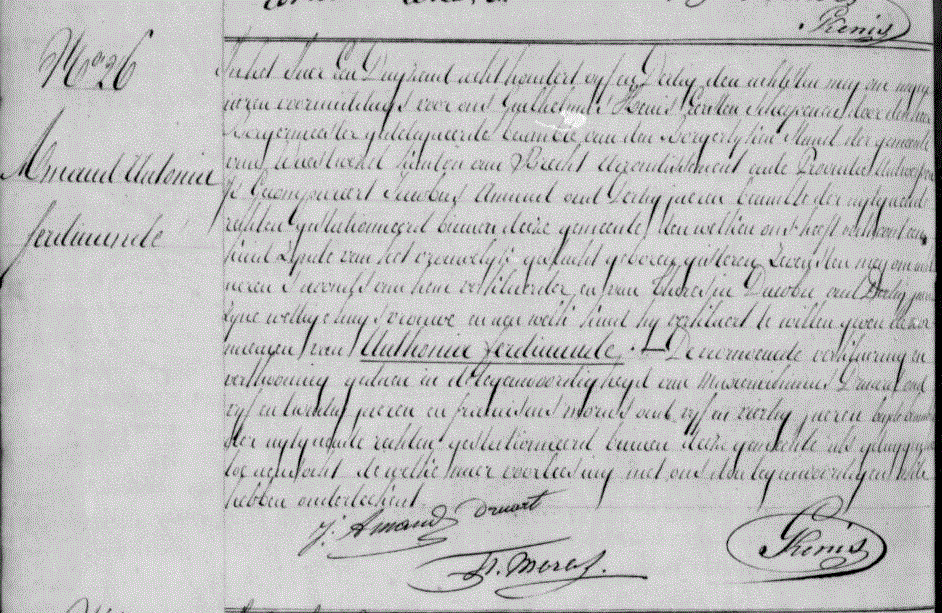 Kenis
No 26
Amand Antonia
ferdinande
In het Jaer Een Duyzend acht hondert vyf en Dertig den achtsten mey om negen
uren voormiddags voor ons Guilhelmus Kenis Eersten Schepenen door den heer
Borgermeester gedelegueerde beambte van den Borgerlyken Stand der gemeente
van Westwezel kanton van Brecht Arrondissement ende Provintie Antwerpen
is Gecompareert Jacobus Amand oud Dertig jaeren beambte der uytgaende
regten gestationneerd binnen deeze gemeente den welken ons heeft verthoont een
kind zynde van het vrouwelyk geslacht geboren gisteren Zevensten mey om
uren s'avonds van hem verklaerder en van Theresia oud Dertig jaeren
zyne wettige huysvrouwe en aen welk kind hy verklaert te willen geven de voor
naemen van Anthonia ferdinande. Dezevoorwaende verklaering en
verthooning gedaen in de tegenwoordigheyd van Maximilianus Druart oud
vyf en twintig jaeren en franciscus morels oud vyf en viertig jaeren beyde beambte
der uytgaende regten gestationneerd binnen deeze gemeente als getuygen
toe aensocht de welke naer voorleesing met ons den tegenwoordigen acte
hebben onderteekent.
J: Amand Druart
F. Morels. Kenis